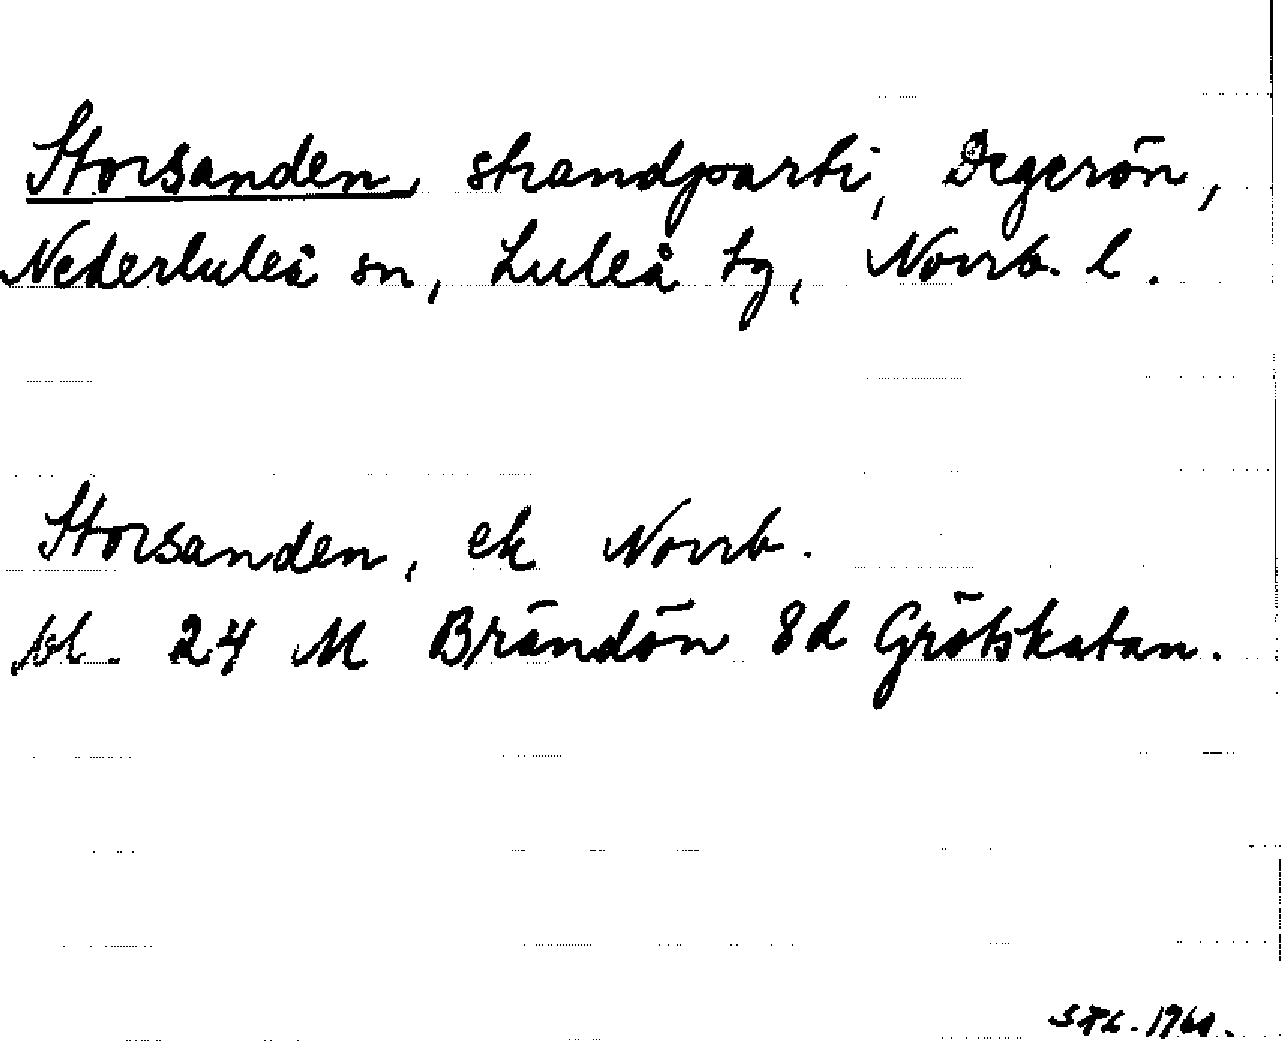 Storsanden, strandparti, Degerön,
Nederluleå sn, Luleå tg, Norrb. l.
Storsanden, ek Norrb.
bl. 24 M Brändön 8d Grötskatan.